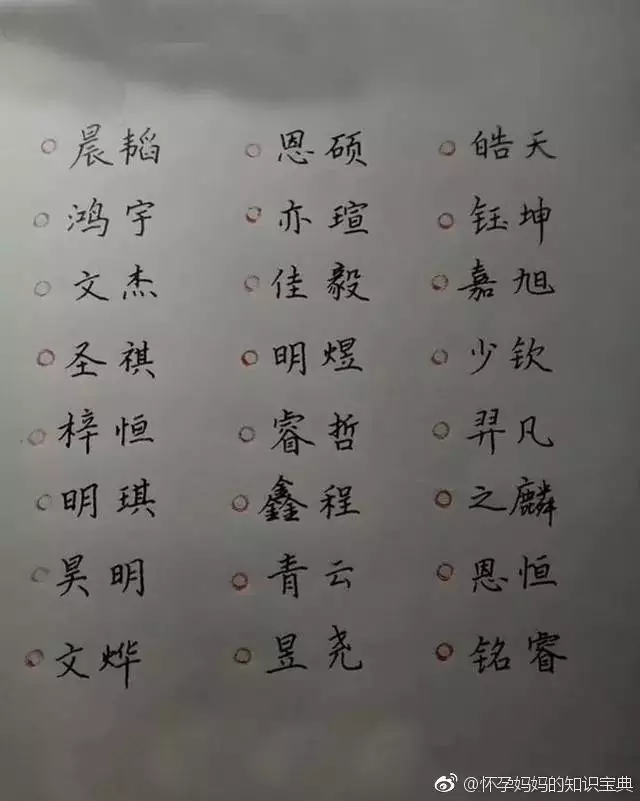 晨韬 恩硕 皓天
鸿宇 亦瑄 钰坤
文杰 佳毅 嘉旭
圣祺 明煜 少钦
梓恒 睿哲 羿凡
明琪 鑫程 之麟
昊明 青云 恩恒
文烨 昱尧 铭睿
@怀孕妈妈的知识宝典